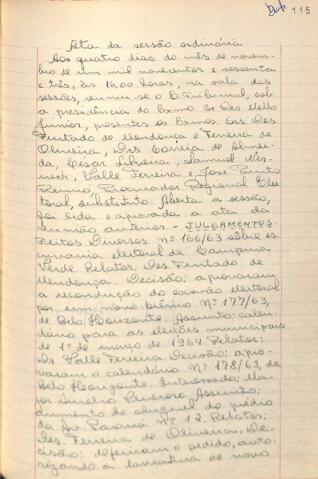 115
Ata da sessão ordinária
Aos quatro dias do mês de novem-
bro de um mil novecentos e sessenta
e três, às 16,00 horas, na sala das
sessões, reuniu-se o E. Tribunal, sob
a presidência do Exmo Sr Des Mello
Júnior, presentes os Exmos. Srs. Des
Furtado de Mendonça e Ferreira de
Oliveira, Drs Corrêa de Almei-
da, Cesar Silveira, Samuel Wer-
neck, Valle Ferreira e José Pinto
Renó, Procurador Regional Elei-
toral, substituto. Aberta a sessão,
foi lida e aprovada a ata da
reunião anterior - JULGAMENTOS:
Feitos Diversos. Nº 166/63 sôbre es-
crivania eleitoral de Campina
Verde. Relator. Des Furtado de
Mendonça. Decisão: aprovaram
a recondução do escrivão eleitoral
por um novo biênio. Nº 177/63,
de Belo Horizonte. Assunto: calen-
dário para as eleições municipais
de 1º de março de 1964. Relator:
Dr. Valle Ferreira. Decisão: apro-
varam o calendário. Nº 178/63, de
Belo Horizonte. Interessado: Ma-
jor Amelio. Assunto:
aumento do aluguel do prédio
da Av. Paraná nº 12. Relator:
Des. Ferreira de Oliveira. De-
cisão: deferiram o pedido, auto-
rizando a lavratura de novo